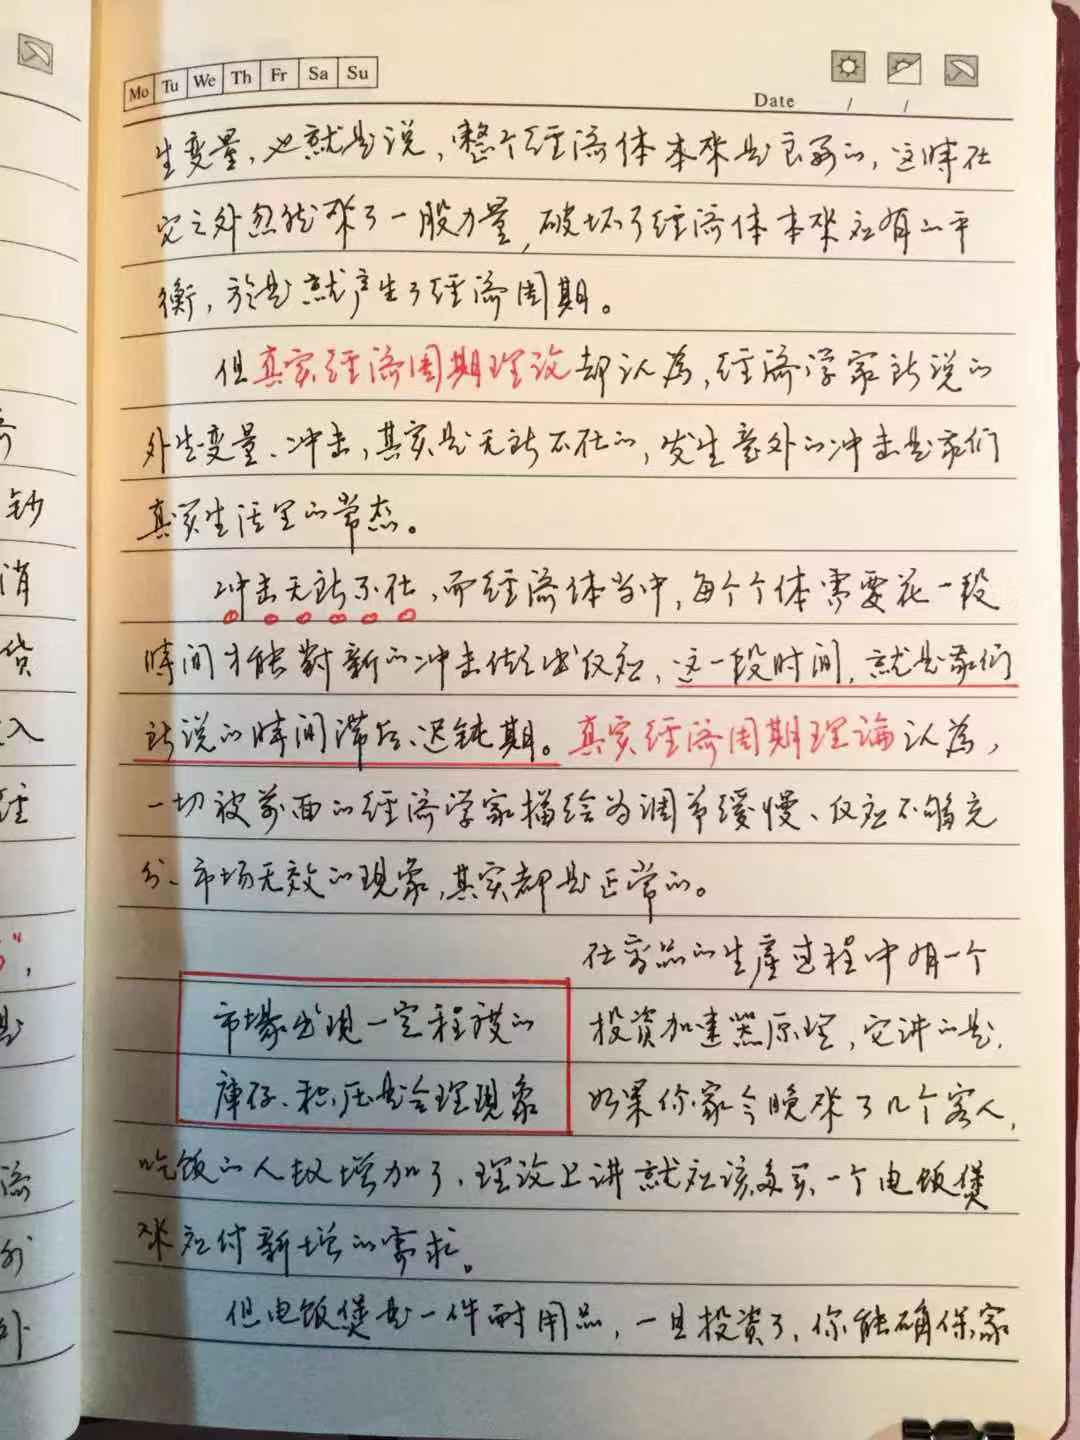 Mo Tu We Th Fr Sa Su
Date / /
生变量,也就是说,整个经济体本来是良好的,这時在
它之外忽然来了一股力量,破坏了经济体本来应有的平
衡,於是就产生了经济周期。
但真实经济周期理论却认為,经济学家所说的
外生变量、冲击,其实是无所不在的,发生意外的冲击是我们
真实生活里的常态。
冲击无所不在,而经济体当中,每个个体需要花一段
時间才能對新的冲击做出反应,这一段时间,就是我们
所说的時间滞后、迟钝期。真实经济周期理論认為,
一切被前面的经济学家描绘为调节缓慢、反应不够充
分、市场无效的现象,其实都是正常的。
在商品的生產过程中有一个
市場出现一定程度的
投资加速器原理,它讲的是,
庫存、积压是合理現象
如果你家今晚来了几个客人,
吃饭的人数增加了,理论上讲就应该多买一个电饭煲
来应付新增的需求。
但电饭煲是一件耐用品,一旦投资了,你能确保家
钞
消
货
入
经
济
外